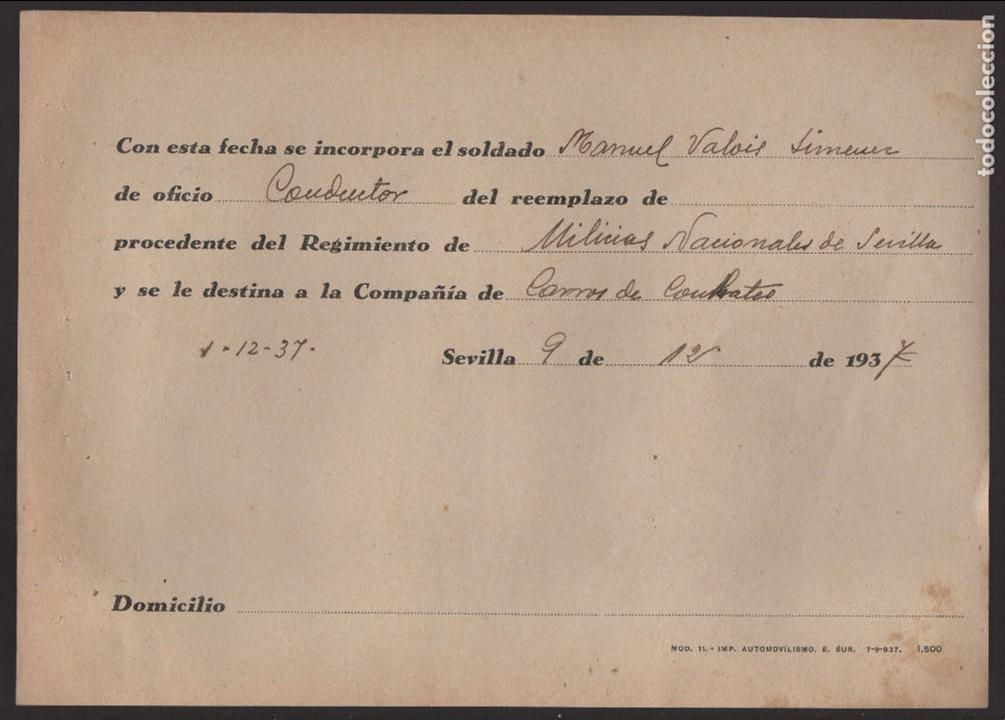 Con esta fecha se incorpora el soldado Manuel Valois Simenez
de oficio Conductor del reemplazo de
procedente del Regimiento de Milicias Nacionales de Sevilla
y se le destina a la Compañía de Carros de Combates
1-12-37.
Sevilla 9 de 12 de 1937
Domicilio
MOD. 11.- IMP. AUTOMOVILISMO. E. SUR. 7-9-937. 1.500
todocoleccion